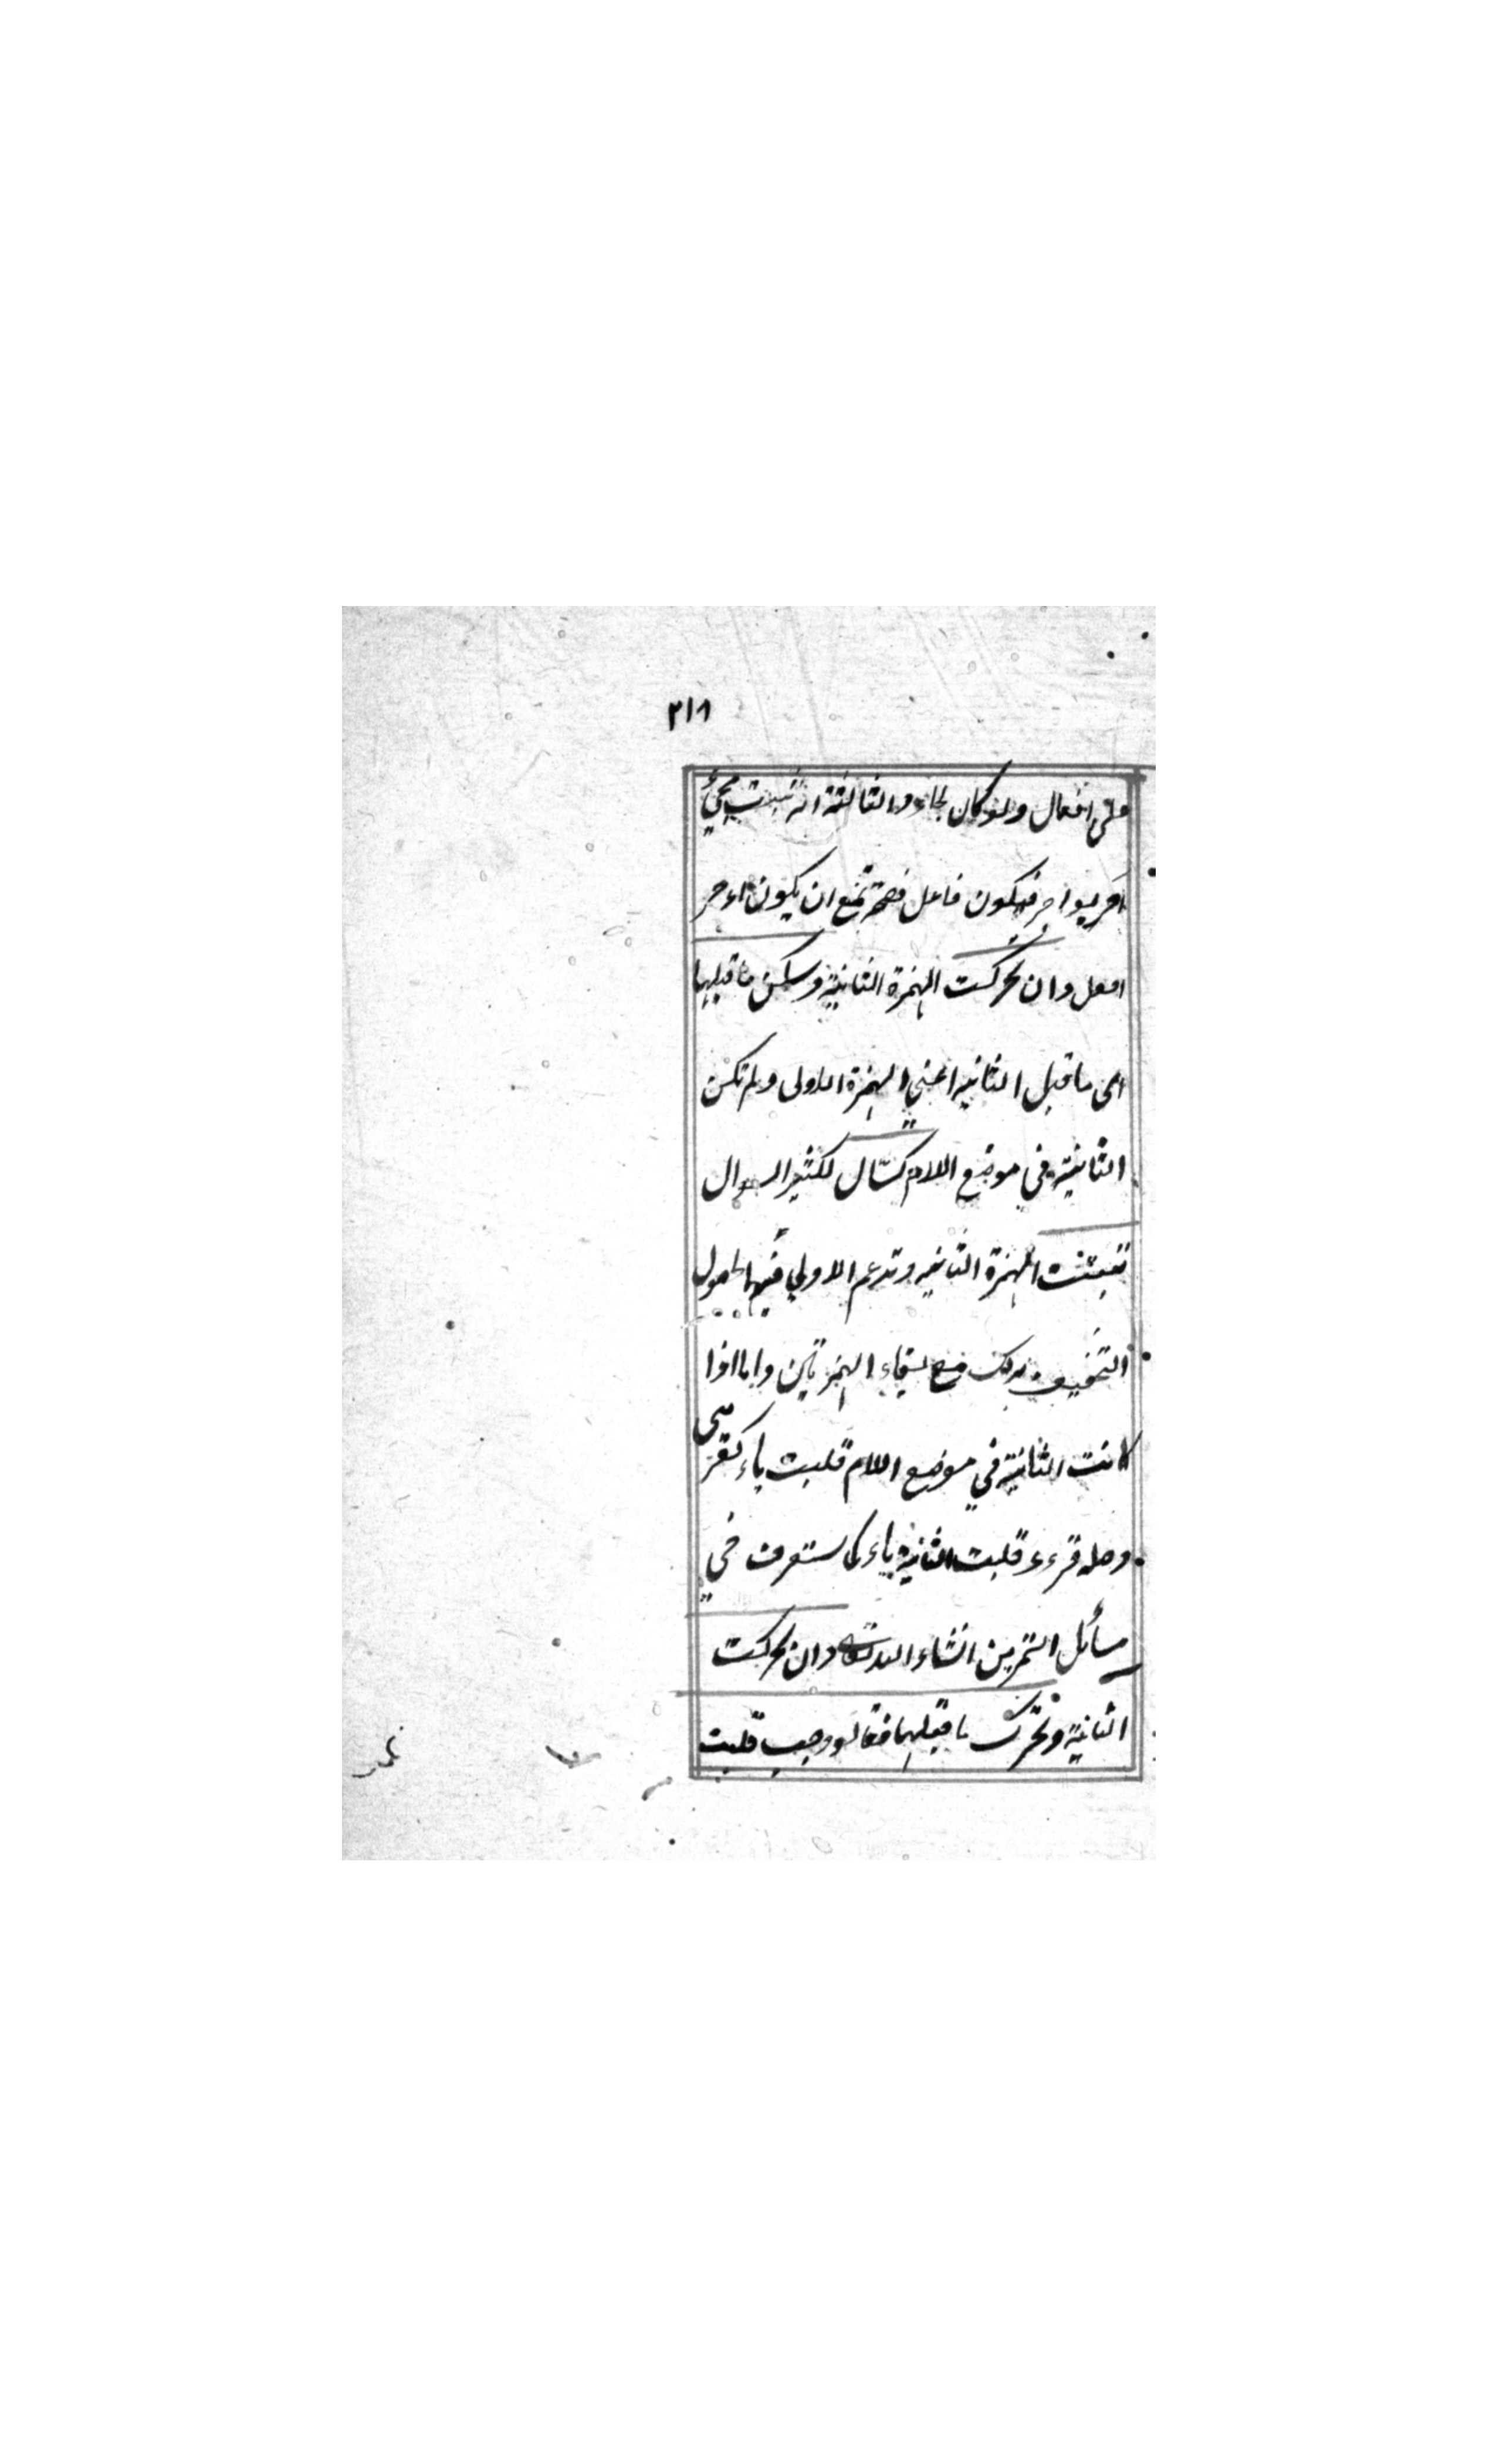 ٣١٨
على افعال ولو كان لجاء والثالثة انه ثبت مجيئ
آجر يواجر فيكون فاعل فصحته تمنع ان يكون اءجر
افعل وان تحركت الهمزة الثانية وسكن ما قبلها
اى ما قبل الثانيه اعنى الهمزة الاولى ولم تكن
الثانية في موضع اللام كسئال لكثير السوال
تثبت الهمزة الثانيه وتدغم الاولي فيها لحصول
التخفيف بذلك مع بقاء الهمزتين واما اذا
كانت الثانية في موضع اللام قلبت ياء كقرءى
وصله قرءء قلبت الثانية ياء كما ستعرف في
مسائل التمرين انشاء الله تعالى وان تحركت
الثانية وتحرك ما قبلها فقالو وجب قلب